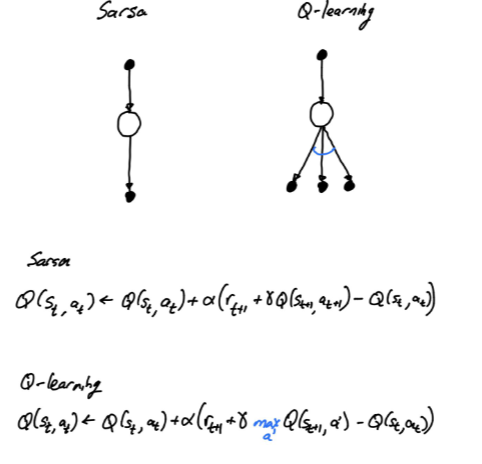 Sarsa Q-learning
Sarsa
Q(s_t, a_t) ← Q(s_t, a_t) + α(r_{t+1} + γQ(s_{t+1}, a_{t+1}) − Q(s_t, a_t))
Q-learning
Q(s_t, a_t) ← Q(s_t, a_t) + α(r_{t+1} + γ max_{a'} Q(s_{t+1}, a') − Q(s_t, a_t))